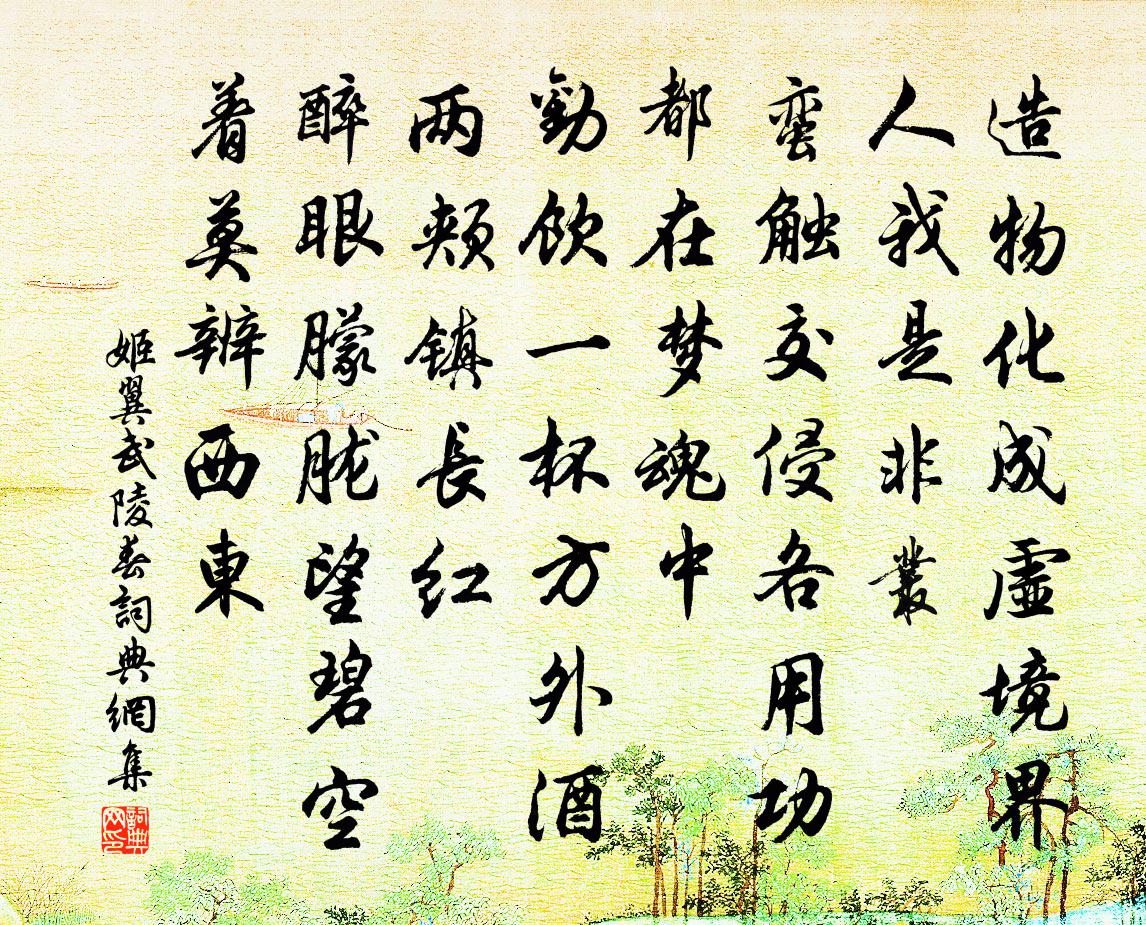 造物化成虚境界
人我是非丛
蛮触交侵各用功
都在梦魂中
勸饮一杯方外酒
两颊镇長红
醉眼朦胧望碧空
着莫辨西東
姬翼武陵春詞典網集
詞典
网印